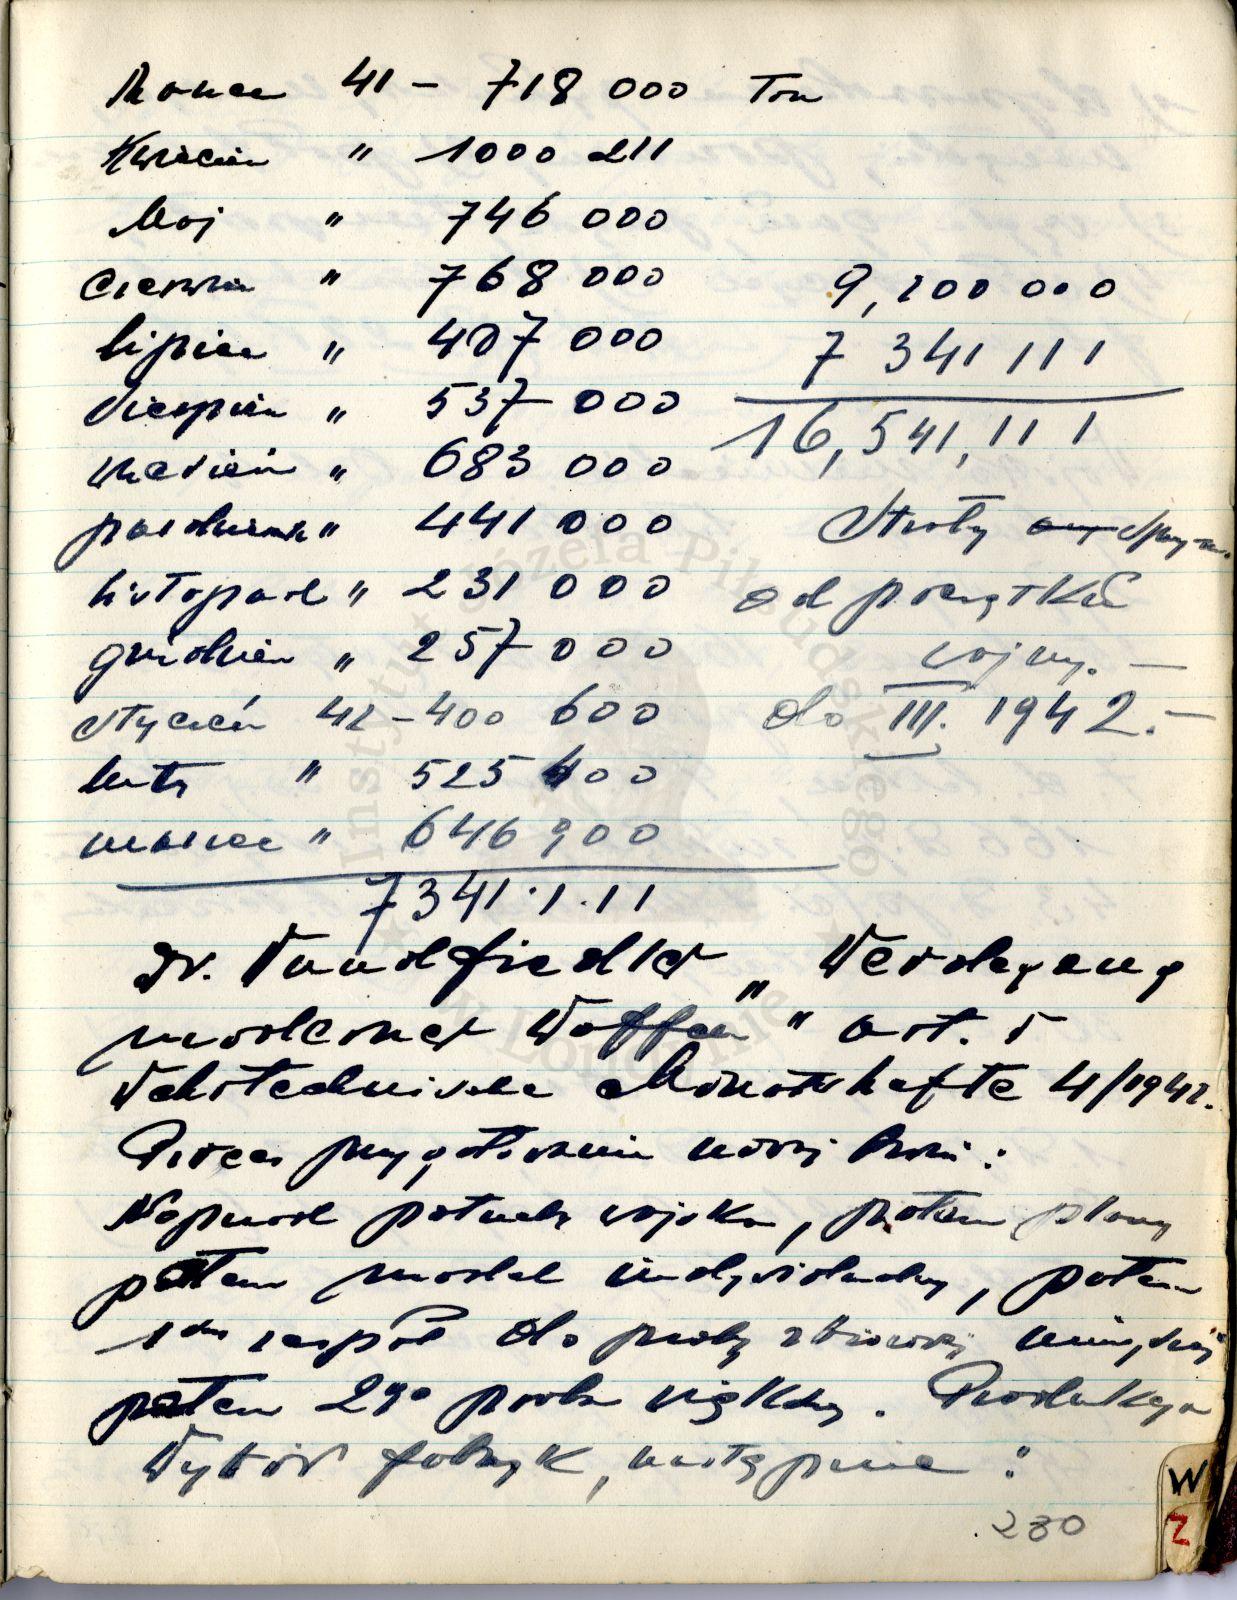 Marzec 41 – 718 000 Ton
Kwiecień " 1000 211
Maj " 746 000
Czerwiec " 768 000
lipiec " 407 000
Sierpień " 537 000
wrzesień " 683 000
październik " 441 000
listopad " 231 000
grudzień " 257 000
Styczeń 42 – 400 600
luty " 525 400
marzec " 646 900
7341.1.11
9,200 000
7 341 111
16,541,111
Straty Sprzym.
od początku
wojny. –
do III. 1942. –
Dr. "Werdegang
moderner Waffen" art. w
Wehrtechnische Monatshefte 4/1942.
Proces przygotowania nowej broni:
Naprzód potrzeby wojska, potem plany
potem model indywidualny, potem
1szy zespół do próby zbiorowej mniejszej
potem 2go próba większy. Produkcja
Wybór fabryk, następnie:
230
W
Z
Instytut Józefa Piłsudskiego
w Londynie